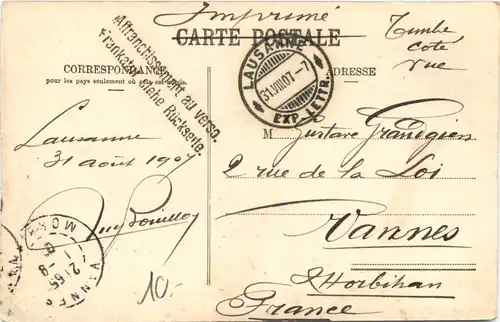 Imprimé
Timbré
côté
vue
CARTE POSTALE
Affranchissement au verso.
Frankatur siehe Rückseite.
CORRESPONDANCE
pour les pays seulement où cela est
ADRESSE
LAUSANNE
31.VIII.07.-7
EXP. LETTR.
Lausanne
31 août 1907
Guy
M Gustave Grandgien
2 rue de la Loi
Vannes
Morbihan
France
VANNES
MORBIHAN
10.-